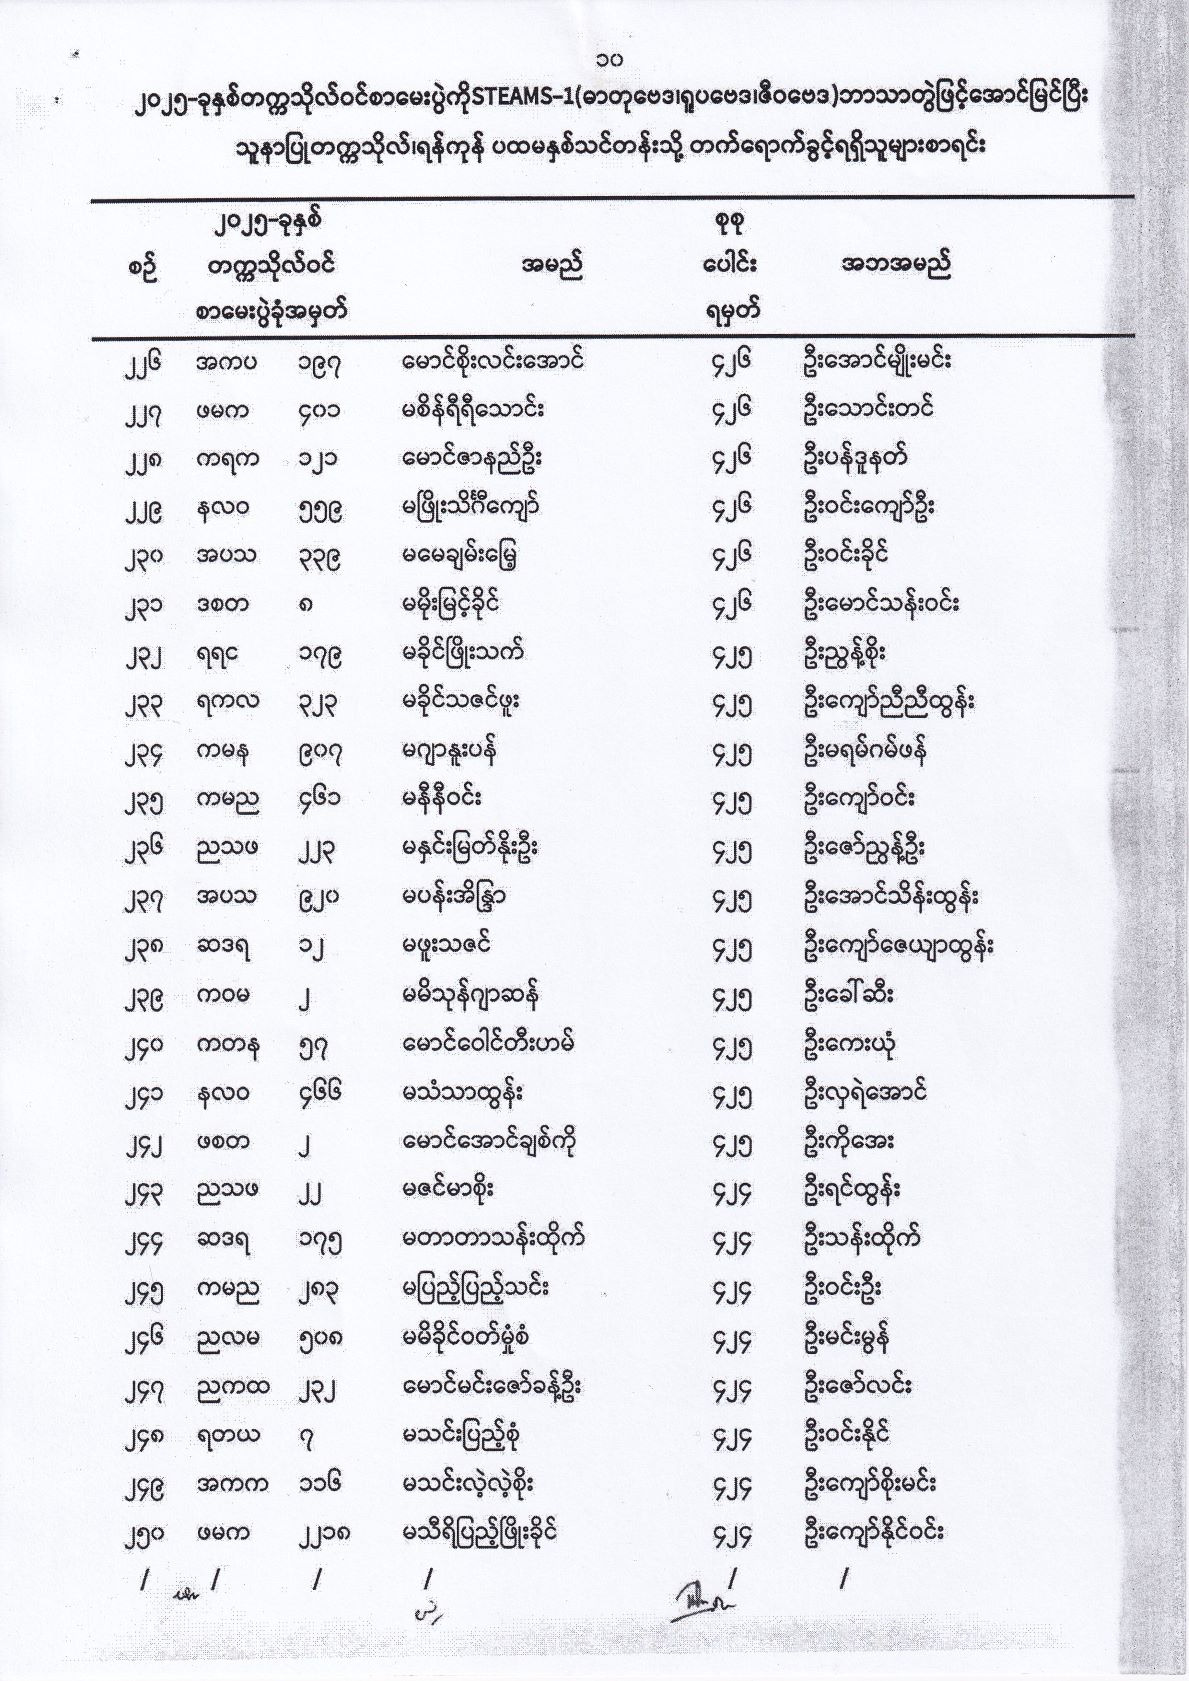 ၁၀
၂၀၂၅-ခုနှစ်တက္ကသိုလ်ဝင်စာမေးပွဲကိုSTEAMS-1(ဓာတုဗေဒ၊ရူပဗေဒ၊ဇီဝဗေဒ)ဘာသာတွဲဖြင့်အောင်မြင်ပြီး
သူနာပြုတက္ကသိုလ်၊ရန်ကုန် ပထမနှစ်သင်တန်းသို့ တက်ရောက်ခွင့်ရရှိသူများစာရင်း
စဉ် ၂၀၂၅-ခုနှစ် တက္ကသိုလ်ဝင် စာမေးပွဲခုံအမှတ် အမည် စုစုပေါင်းရမှတ် အဘအမည်
၂၂၆ အကပ ၁၉၇ မောင်စိုးလင်းအောင် ၄၂၆ ဦးအောင်မျိုးမင်း
၂၂၇ ဖမက ၄၀၁ မစိန်ရီရီသောင်း ၄၂၆ ဦးသောင်းတင်
၂၂၈ ကရက ၁၂၁ မောင်ဇာနည်ဦး ၄၂၆ ဦးပန်ဒူနတ်
၂၂၉ နလဝ ၅၅၉ မဖြိုးသိင်္ဂီကျော် ၄၂၆ ဦးဝင်းကျော်ဦး
၂၃၀ အပသ ၃၃၉ မမေချမ်းမြေ့ ၄၂၆ ဦးဝင်းခိုင်
၂၃၁ ဒစတ ၈ မမိုးမြင့်ခိုင် ၄၂၆ ဦးမောင်သန်းဝင်း
၂၃၂ ရရင ၁၇၉ မခိုင်ဖြိုးသက် ၄၂၅ ဦးညွန့်စိုး
၂၃၃ ရကလ ၃၂၃ မခိုင်သဇင်ဖူး ၄၂၅ ဦးကျော်ညီညီထွန်း
၂၃၄ ကမန ၉၀၇ မဂျာနူးပန် ၄၂၅ ဦးမရမ်ဂမ်ဖန်
၂၃၅ ကမည ၄၆၁ မနီနီဝင်း ၄၂၅ ဦးကျော်ဝင်း
၂၃၆ ညသဖ ၂၂၃ မနှင်းမြတ်နိုးဦး ၄၂၅ ဦးဇော်ညွန့်ဦး
၂၃၇ အပသ ၉၂၀ မပန်းအိန္ဒြာ ၄၂၅ ဦးအောင်သိန်းထွန်း
၂၃၈ ဆဒရ ၁၂ မဖူးသဇင် ၄၂၅ ဦးကျော်ဇေယျာထွန်း
၂၃၉ ကဝမ ၂ မမိသုန်ဂျာဆန် ၄၂၅ ဦးခေါ်ဆီး
၂၄၀ ကတန ၅၇ မောင်ဝေါင်တီးဟမ် ၄၂၅ ဦးကေးယုံ
၂၄၁ နလဝ ၄၆၆ မသံသာထွန်း ၄၂၅ ဦးလှရဲအောင်
၂၄၂ ဖစတ ၂ မောင်အောင်ချစ်ကို ၄၂၅ ဦးကိုအေး
၂၄၃ ညသဖ ၂၂ မဇင်မာစိုး ၄၂၄ ဦးရင်ထွန်း
၂၄၄ ဆဒရ ၁၇၅ မတာတာသန်းထိုက် ၄၂၄ ဦးသန်းထိုက်
၂၄၅ ကမည ၂၈၃ မပြည့်ပြည့်သင်း ၄၂၄ ဦးဝင်းဦး
၂၄၆ ညလမ ၅၀၈ မမိခိုင်ဝတ်မှုံစံ ၄၂၄ ဦးမင်းမွန်
၂၄၇ ညကထ ၂၃၂ မောင်မင်းဇော်ခန့်ဦး ၄၂၄ ဦးဇော်လင်း
၂၄၈ ရတယ ၇ မသင်းပြည့်စုံ ၄၂၄ ဦးဝင်းနိုင်
၂၄၉ အကက ၁၁၆ မသင်းလဲ့လဲ့စိုး ၄၂၄ ဦးကျော်စိုးမင်း
၂၅၀ ဖမက ၂၂၁၈ မသီရိပြည့်ဖြိုးခိုင် ၄၂၄ ဦးကျော်နိုင်ဝင်း
/ / / / / /